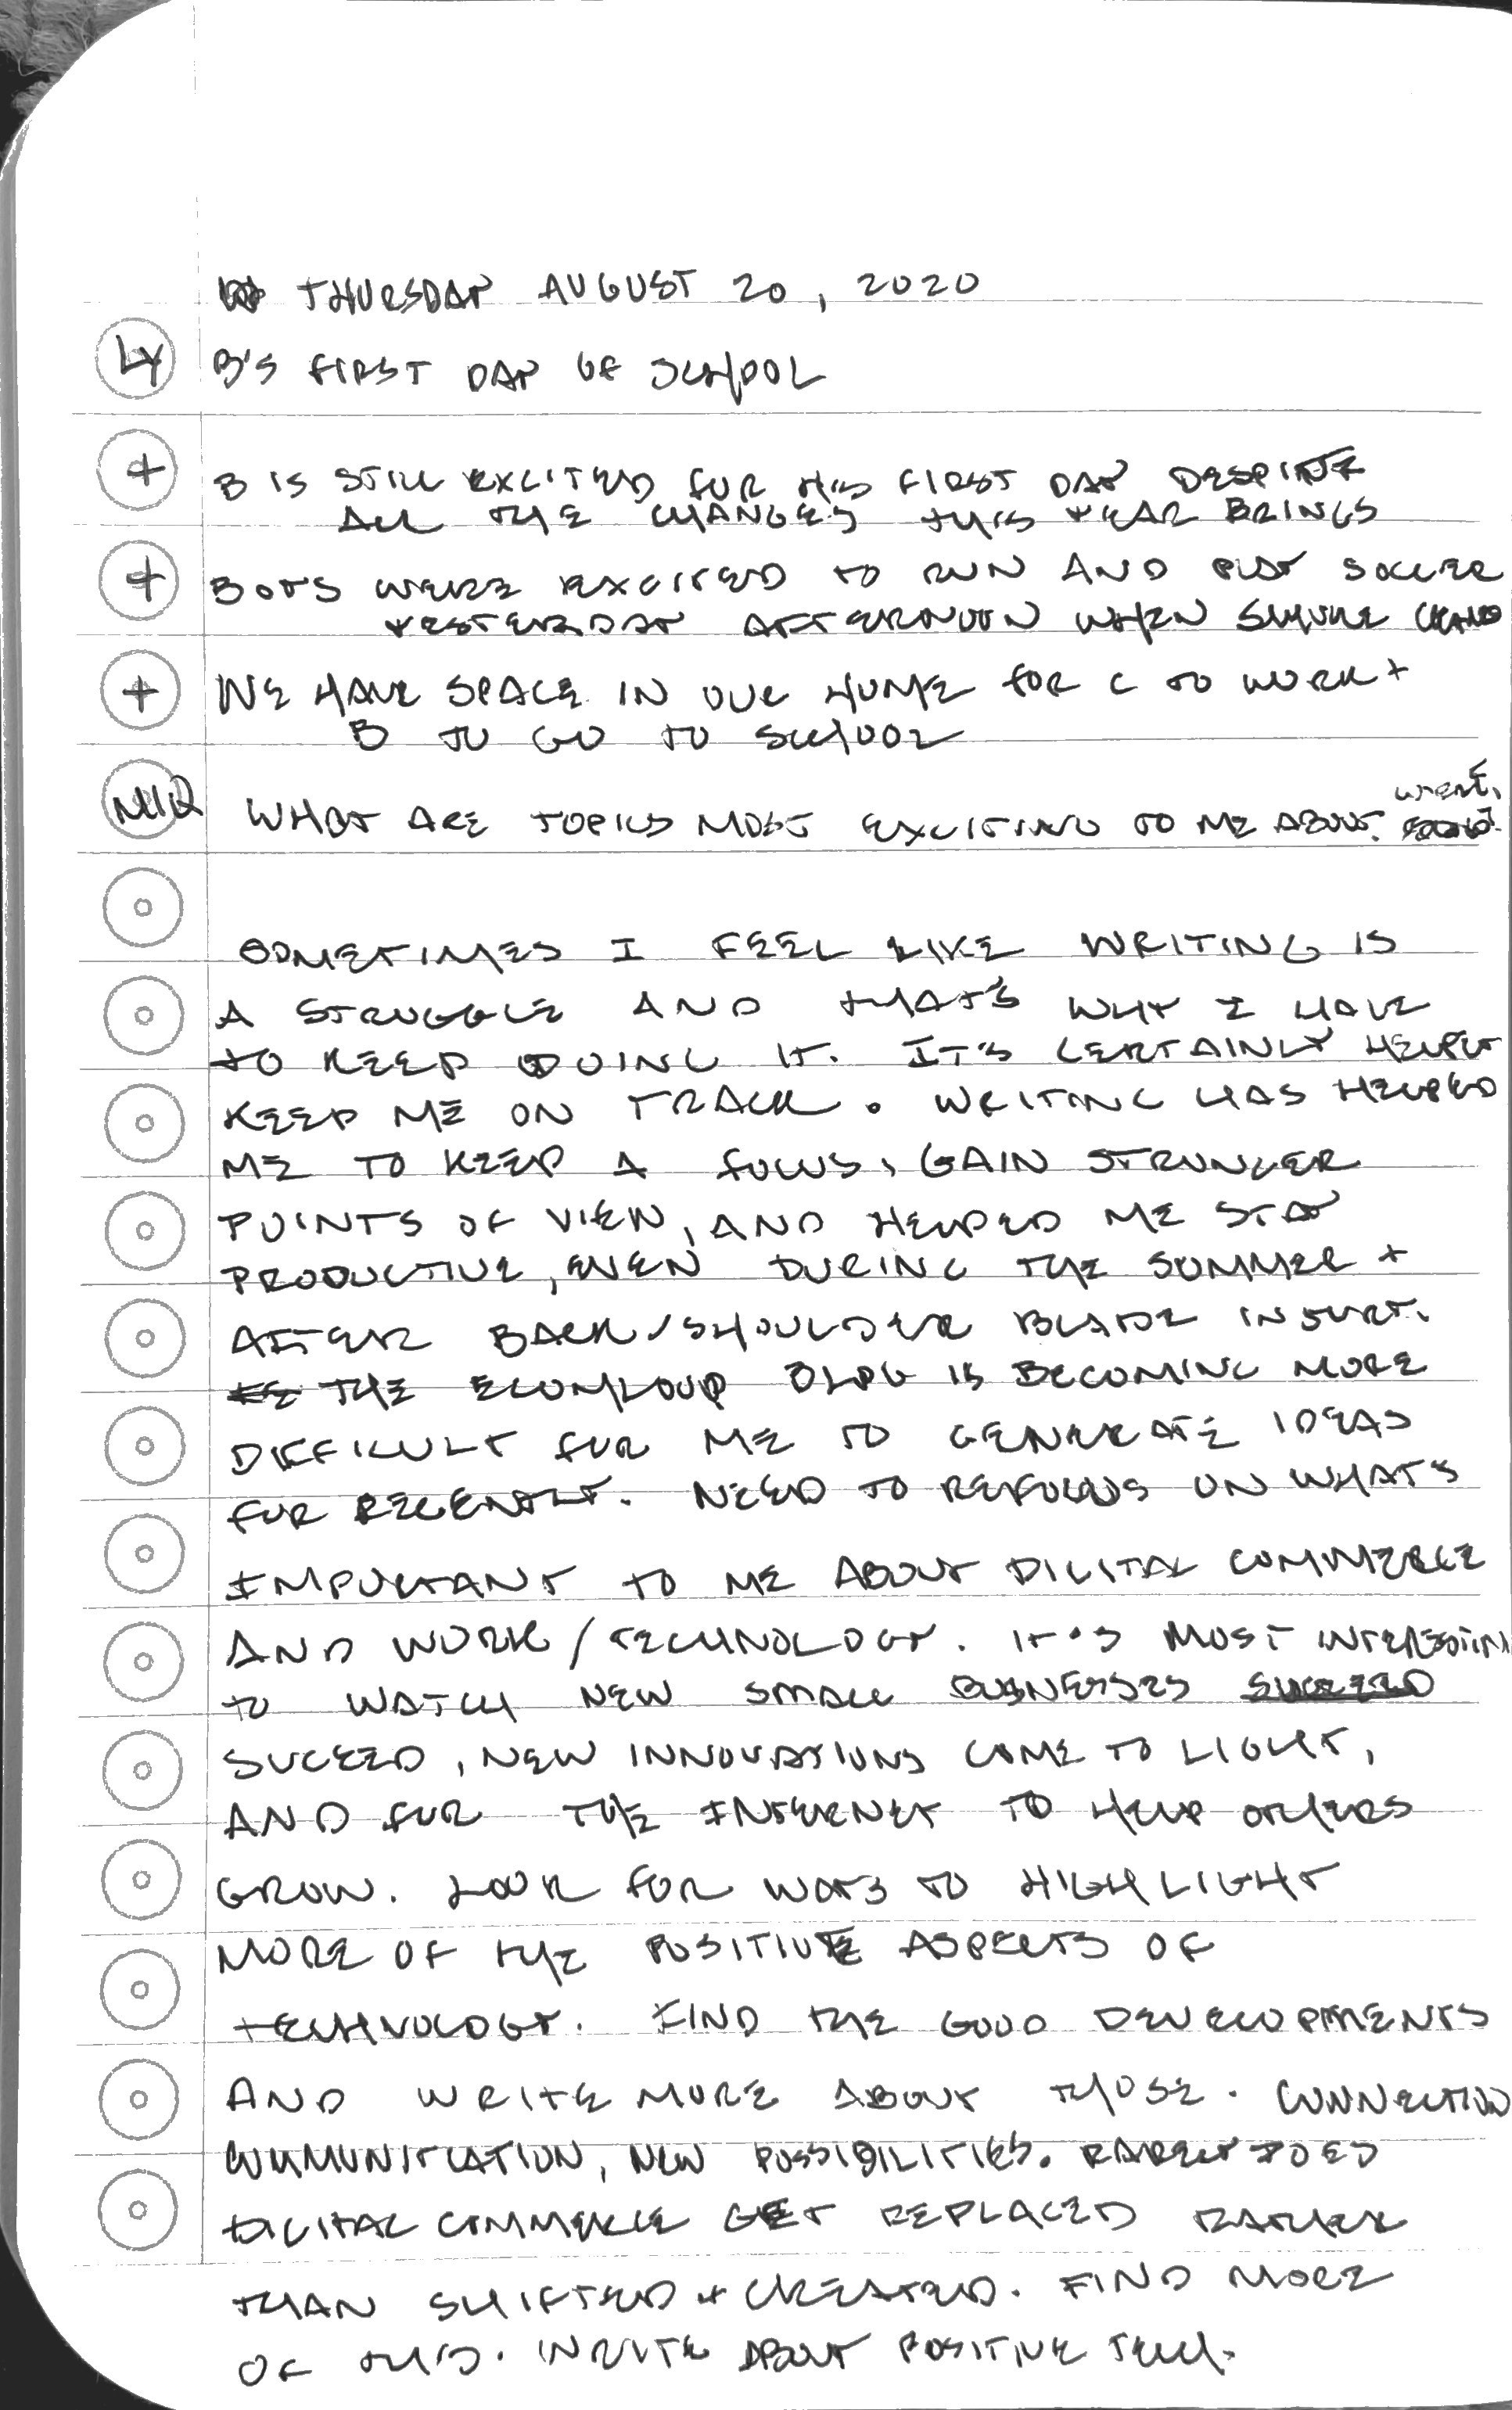 THURSDAY AUGUST 20, 2020
LY B'S FIRST DAY OF SCHOOL
+ B IS STILL EXCITED FOR HIS FIRST DAY DESPITE
ALL THE CHANGES THIS YEAR BRINGS
+ BOYS WERE EXCITED TO RUN AND PLAY SOCCER
YESTERDAY AFTERNOON WHEN SMOKE
+ WE HAVE SPACE IN OUR HOME FOR C TO WORK +
B TO GO TO SCHOOL
MIQ WHAT ARE TOPICS MOST EXCITING TO ME ABOUT
SOMETIMES I FEEL LIKE WRITING IS
A STRUGGLE AND THAT'S WHY I HAVE
TO KEEP DOING IT. IT'S CERTAINLY HELPED
KEEP ME ON TRACK. WRITING HAS HELPED
ME TO KEEP A FOCUS, GAIN STRONGER
POINTS OF VIEW, AND HELPED ME STAY
PRODUCTIVE, EVEN DURING THE SUMMER +
AFTER BACK/SHOULDER BLADE INJURY.
THE ECOMLOUP BLOG IS BECOMING MORE
DIFFICULT FOR ME TO GENERATE IDEAS
FOR RECENTLY. NEED TO REFOCUS ON WHAT'S
IMPORTANT TO ME ABOUT DIGITAL COMMERCE
AND WORK/TECHNOLOGY. IT'S MOST INTERESTING
TO WATCH NEW SMALL BUSINESSES SUCEED
SUCEED, NEW INNOVATIONS COME TO LIGHT,
AND FOR THE INTERNET TO HELP OTHERS
GROW. LOOK FOR WAYS TO HIGHLIGHT
MORE OF THE POSITIVE ASPECTS OF
TECHNOLOGY. FIND THE GOOD DEVELOPMENTS
AND WRITE MORE ABOUT THOSE. CONNECTION
COMMUNICATION, NEW POSSIBILITIES. RARELY DOES
DIGITAL COMMERCE GET REPLACED RATHER
THAN SHIFTED + CREATED. FIND MORE
OF THIS. WRITE ABOUT POSITIVE TECH.